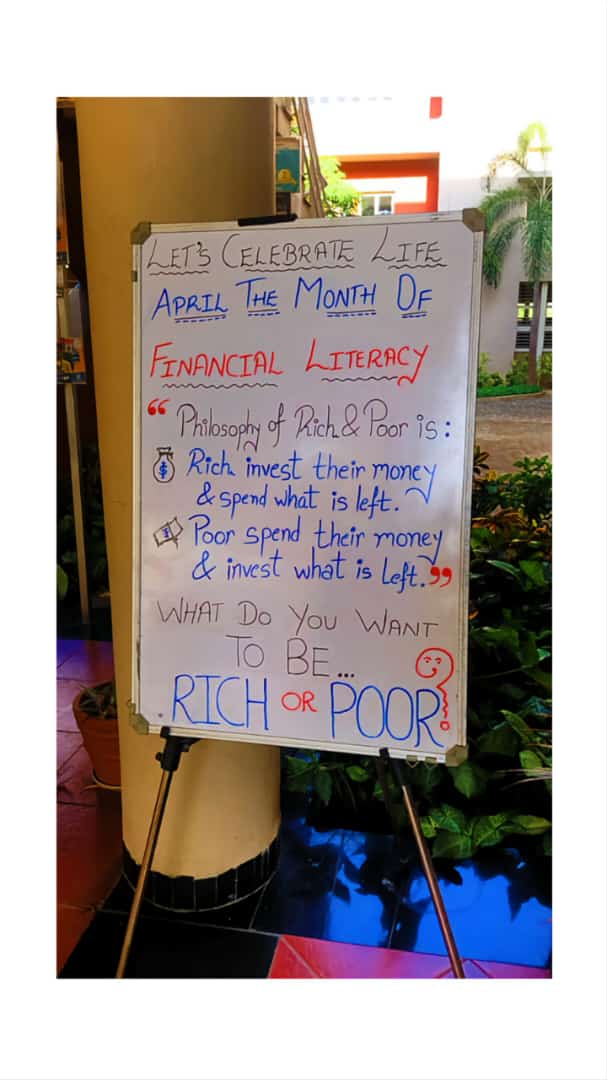 LET'S CELEBRATE LIFE
APRIL THE MONTH OF
FINANCIAL LITERACY
“ Philosophy of Rich & Poor is :
Rich invest their money
& spend what is left.
Poor spend their money
& invest what is left.”
WHAT DO YOU WANT
TO BE...
RICH OR POOR?